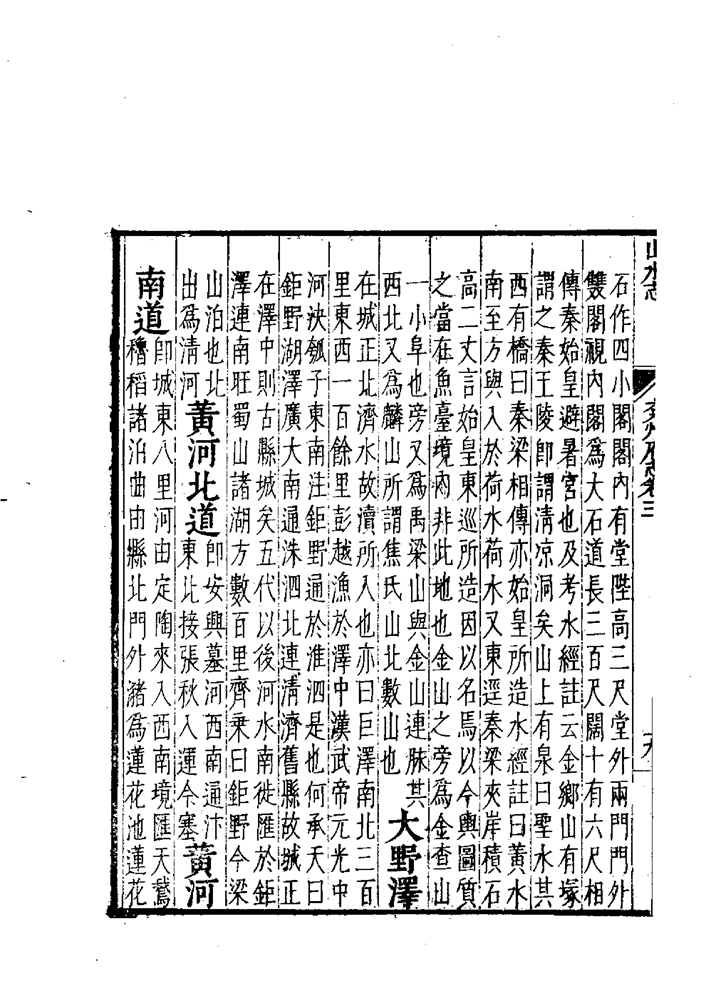 山水志 兗州府志卷三 九
石作四小閣閣內有堂陛高三尺堂外兩門門外
雙閣視內閣爲大石道長三百尺闊十有六尺相
傳秦始皇避暑宮也及考水經註云金鄉山有塚
謂之秦王陵卽謂淸凉洞矣山上有泉曰聖水其
西有橋曰秦梁相傳亦始皇所造水經註曰黃水
南至方與入於荷水荷水又東逕秦梁夾岸積石
高二丈言始皇東巡所造因以名焉以今輿圖質
之當在魚臺境內非此地也金山之旁爲金查山
一小阜也旁又爲禹梁山與金山連脉其
西北又爲麟山所謂焦氏山北數山也
大野澤
在城正北濟水故瀆所入也亦曰巨澤南北三百
里東西一百餘里彭越漁於澤中漢武帝元光中
河決瓠子東南注鉅野通於淮泗是也何承天曰
鉅野湖澤廣大南通洙泗北連淸濟舊縣故城正
在澤中則古縣城矣五代以後河水南徙匯於鉅
澤連南旺蜀山諸湖方數百里齊乘曰鉅野今梁
山泊也北
出爲淸河
黃河北道
卽安興墓河西南通汴
東北接張秋入運今塞
黃河
南道
卽城東八里河由定陶來入西南境匯天鵞
穭稻諸泊曲由縣北門外瀦爲蓮花池蓮花